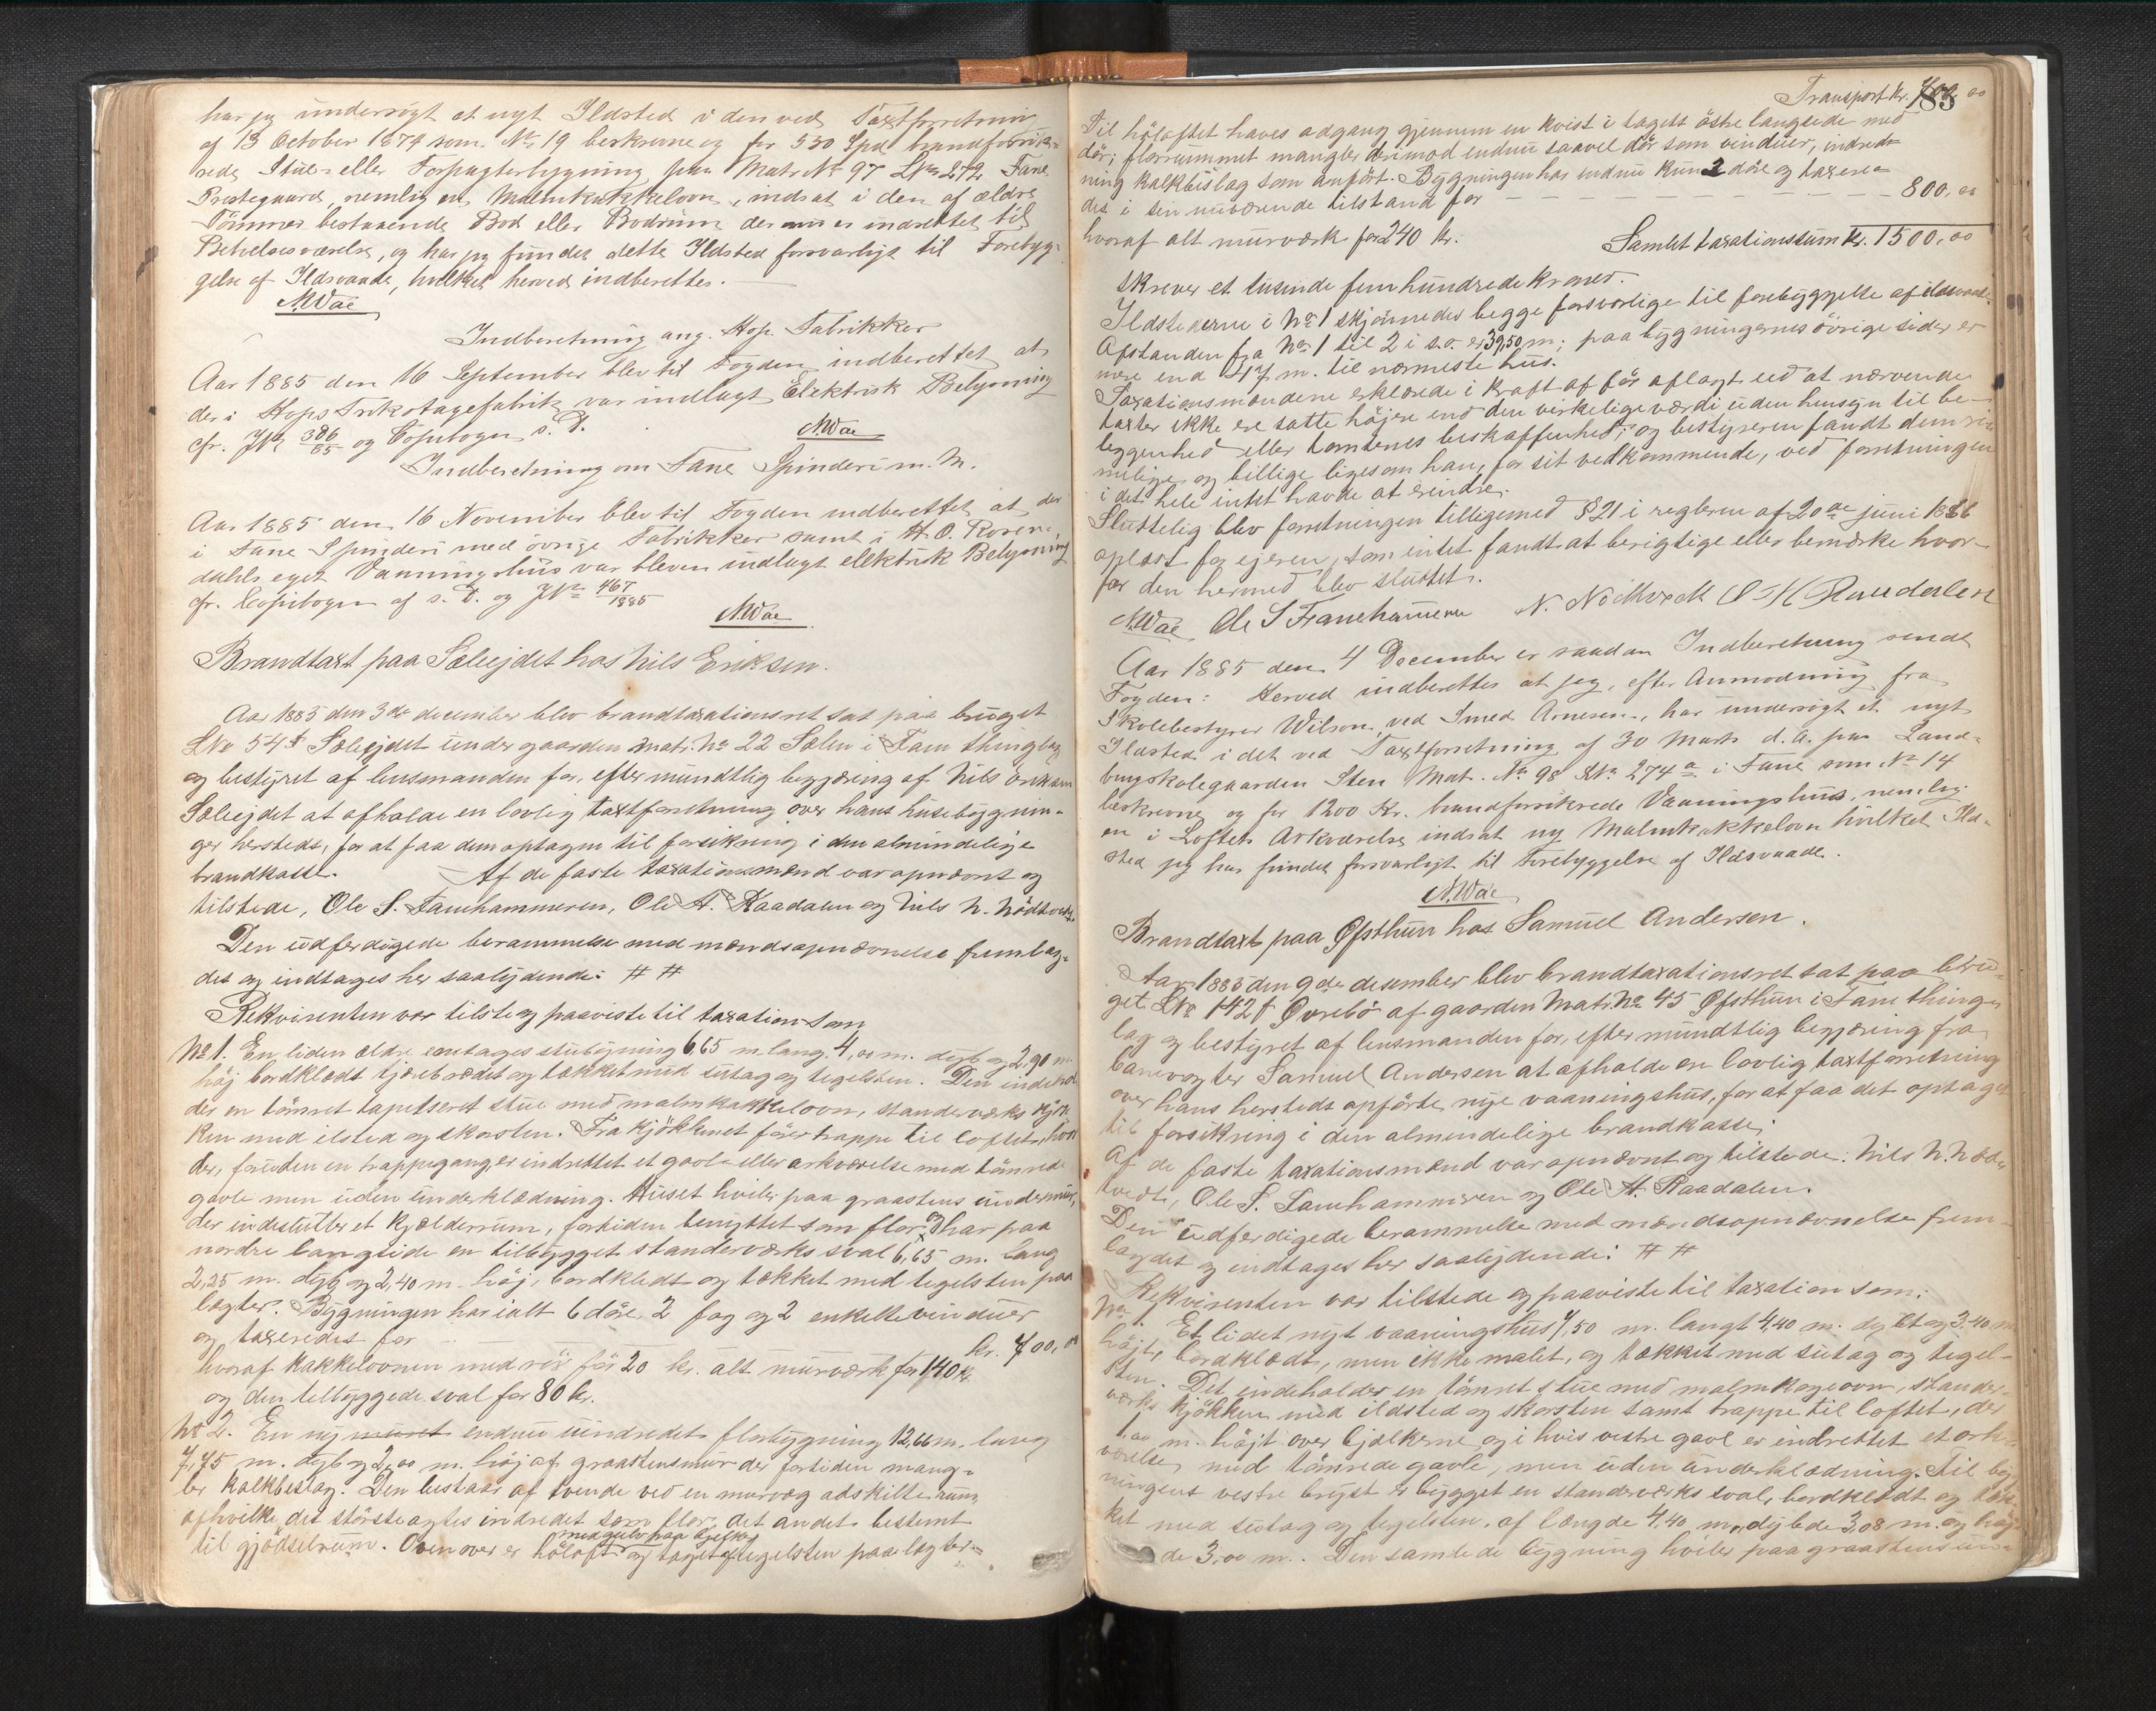 har jeg undersøgt et nyt Ildsted i den ved Taxtforretning
af 13 October 1879 som No 19 beskrevne og for 530 Spd brandforsik-
rede Stue- eller Forpagterbygning paa Matr No 97 LNo 272 Fane
Prestegaard, nemlig en Malmkakkelovn, indsat i den af ældre
Tømmer bestaaende Bod eller Bodrum der nu er indrettet til
Beboelsesværelse, og har jeg fundet dette Ildsted forsvarligt til Forebyg-
gelse af Ildsvaade, hvilket herved indberettes.
N.Wae
Indberetning ang. Hop Fabrikker
Aar 1885 den 16 September blev til Fogden indberettet at
der i Hops Trikotagefabrik var indlagt Elektrisk Belysning
cfr. JNo 386/85 og Copibogen s. D.
N.Wae
Indberetning om Fane Spinderi m. M.
Aar 1885 den 16 November blev til Fogden indberettet at der
i Fane Spinderi med øvrige Fabrikker samt i H. O. Rosen-
dahls eget Vaaningshus var bleven indlagt elektrisk Belysning
cfr. Copibogen af s. D. og JNo 467/1885
N.Wae
Brandtaxt paa Sæleejdet hos Nils Eriksen.
Aar 1885 den 3de december blev brandtaxationsret sat paa bruget
LNo 54 Sæleejdet under gaarden matr. No 22 Sælen i Fane thinglag
og bestyret af lensmanden for, efter mundtlig begjæring af Nils Eriksen
Sæleejdet at afholde en lovlig taxtforretning over hans husebygnin-
ger hersteds, for at faa dem optagen til forsikring i den almindelige
brandkasse. Af de faste taxationsmænd var opnævnt og
tilstede, Ole S. Fanehammeren, Ole A. Raadalen og Nils N. Nödtvedt.
Den udferdigede berammelse med mændsopnævnelse fremlag-
des og indtages her saalydende: # #
Rekvirenten var tilste og paaviste til taxation som
No 1. En liden ældre enetages stubygning 6,65 m lang, 4,00 m. dyb og 2,90 m.
höj bordklædt tjærebrædet og tækket med sutag og tegelsten. Den indehol-
der en tömret tapetseret stue med malmkakkelovn, standerværks kjök-
ken med ilsted og skorsten. Fra kjökkenet förer trappe til loftet, hvor
der, foruden en trappegang, er indrettet et gavl- eller arkværelse med tömrede
gavle men uden underklædning. Huset hviler paa graastens undermur,
der indeslutter et kjælderrum, fortiden benyttet som flor, & har paa
nordre langside en tilbygget standerværks sval 6,65 m. lang
2,25 m. dyb og 2,40 m. höj, bordklædt og tækket med tegelsten paa
lægter. Bygningen har ialt 6 döre, 2 fag og 2 enkelte vinduer
og taxeredes for kr. 700,00
hvoraf kakkelovnen med rör for 20 kr. alt murværk for 140 kr.
og den tilbyggede sval for 80 kr.
No 2. En ny muret endnu uindredet florbygning 12,66 m. lang
7,75 m. dyb og 2,00 m. höj af graastensmur der fortiden mang-
ler kalkbeslag. Den bestaar af tvende ved en murvæg adskilte rum,
afhvilke det störste agtes indredet som flor, det andet bestemt
til gjödselrum. Ovenover er höloft med gulv paa bjelker og taget af tegelsten paa lægter.
183
Transport kr. 700,00
Til höloftet haves adgang gjennem en kvist i tagets östre langside med
dör; florrummet mangler derimod endnu saavel dör som vinduer, indred-
ning kalkbislag som anfört. Bygningen har endnu kun 2 döre og taxere-
des i sin nuværende tilstand for 800,00
hvoraf alt murværk for 240 kr. Samlet taxationssum kr. 1500,00
skrever et tusinde femhundrede kroner.
Ildstederne i No 1 skjönnedes begge forsvarlige til forebyggelse af ildsvaade.
Afstanden fra No 1 til 2 i s.o. er 39,50 m; paa bygningernes övrige sider er
mere end 47 m. til nærmeste hus.
Taxationsmændene erklærede i kraft af för aflagt eed at nærværende
taxter ikke ere satte höjere end den virkelige værdi uden hensyn til be-
liggenhed eller tomtenes beskaffenhed; og bestyreren fandt dem ri-
melige og billige ligesom han, for sit vedkommende, ved forretningen
i det hele intet havde at erindre.
Sluttelig blev forretningen tilligemed § 21 i reglerne af 20de juni 18
oplæst for ejeren, som intet fandt at berigtige eller bemærke hvor-
for den hermed blev sluttet.
N.Wae Ole S Fanehammeren N. Nödtvedt O A Raadalen
Aar 1885 den 4 December er saadan Indberetning sendt
Fogden: Herved indberettes at jeg, efter Anmodning fra
Skolebestyrer Wilson, ved Smed Arnesen, har undersøgt et nyt
Ildsted i det ved Taxtforretning af 30 Marts d. A. paa Land-
brugsskolegaarden Sten Mat. No 98 LNo 274 a i Fane som No 14
beskrevne og for 1200 Kr. brandforsikrede Vaaningshus, nemlig
en i Loftets Arkværelse indsat ny Malmkakkelovn hvilket Ild-
sted jeg har fundet forsvarligt til Forebyggelse af Ildsvaade.
N.Wae
Brandtaxt paa Øfsthun hos Samuel Andersen.
Aar 1885 den 9de desember blev brandtaxationsret sat paa bru-
get LNo 142 f Övrebö af gaarden Matr. No 45 Øfsthun i Fane thing-
lag og bestyret af lensmanden for, efter mundtlig begjæring fra
banevogter Samuel Andersen at afholde en lovlig taxtforretning
over hans hersteds opförte, nye vaaningshus, for at faa det optaget
til forsikring i den almindelige brandkasse;
Af de faste taxationsmænd var opnævnt og tilstede: Nils N. Nöd-
tvedt, Ole S. Fanehammeren og Ole A. Raadalen.
Den udferdigede berammelse med mændsopnævnelse frem-
lagdes og indtages her saalydende: # #
Rekvirenten var tilstede og paaviste til taxation som:
No 1. Et lidet nyt vaaningshus 7,50 m. langt 4,40 m. dybt og 3,40 m
höjt, bordklædt, men ikke malet, og tækket med sutag og tegel-
sten. Det indeholder en tömret stue med malmkogeovn, stander-
værks kjökken med ildsted og skorsten samt trappe til loftet, der
1,00 m. höjt over bjelkerne og i hvis vestre gavl er indrettet et ark-
værelse med tömrede gavle, men uden underklædning. Til byg-
ningens vestre bryst er bygget en standerværks sval, bordklædt og tæk-
ket med sutag og tegelsten, af længde 4,40 m., dybde 3,08 m. og höj-
de 3,00 m.. Den samlede bygning hviler paa graastensun-